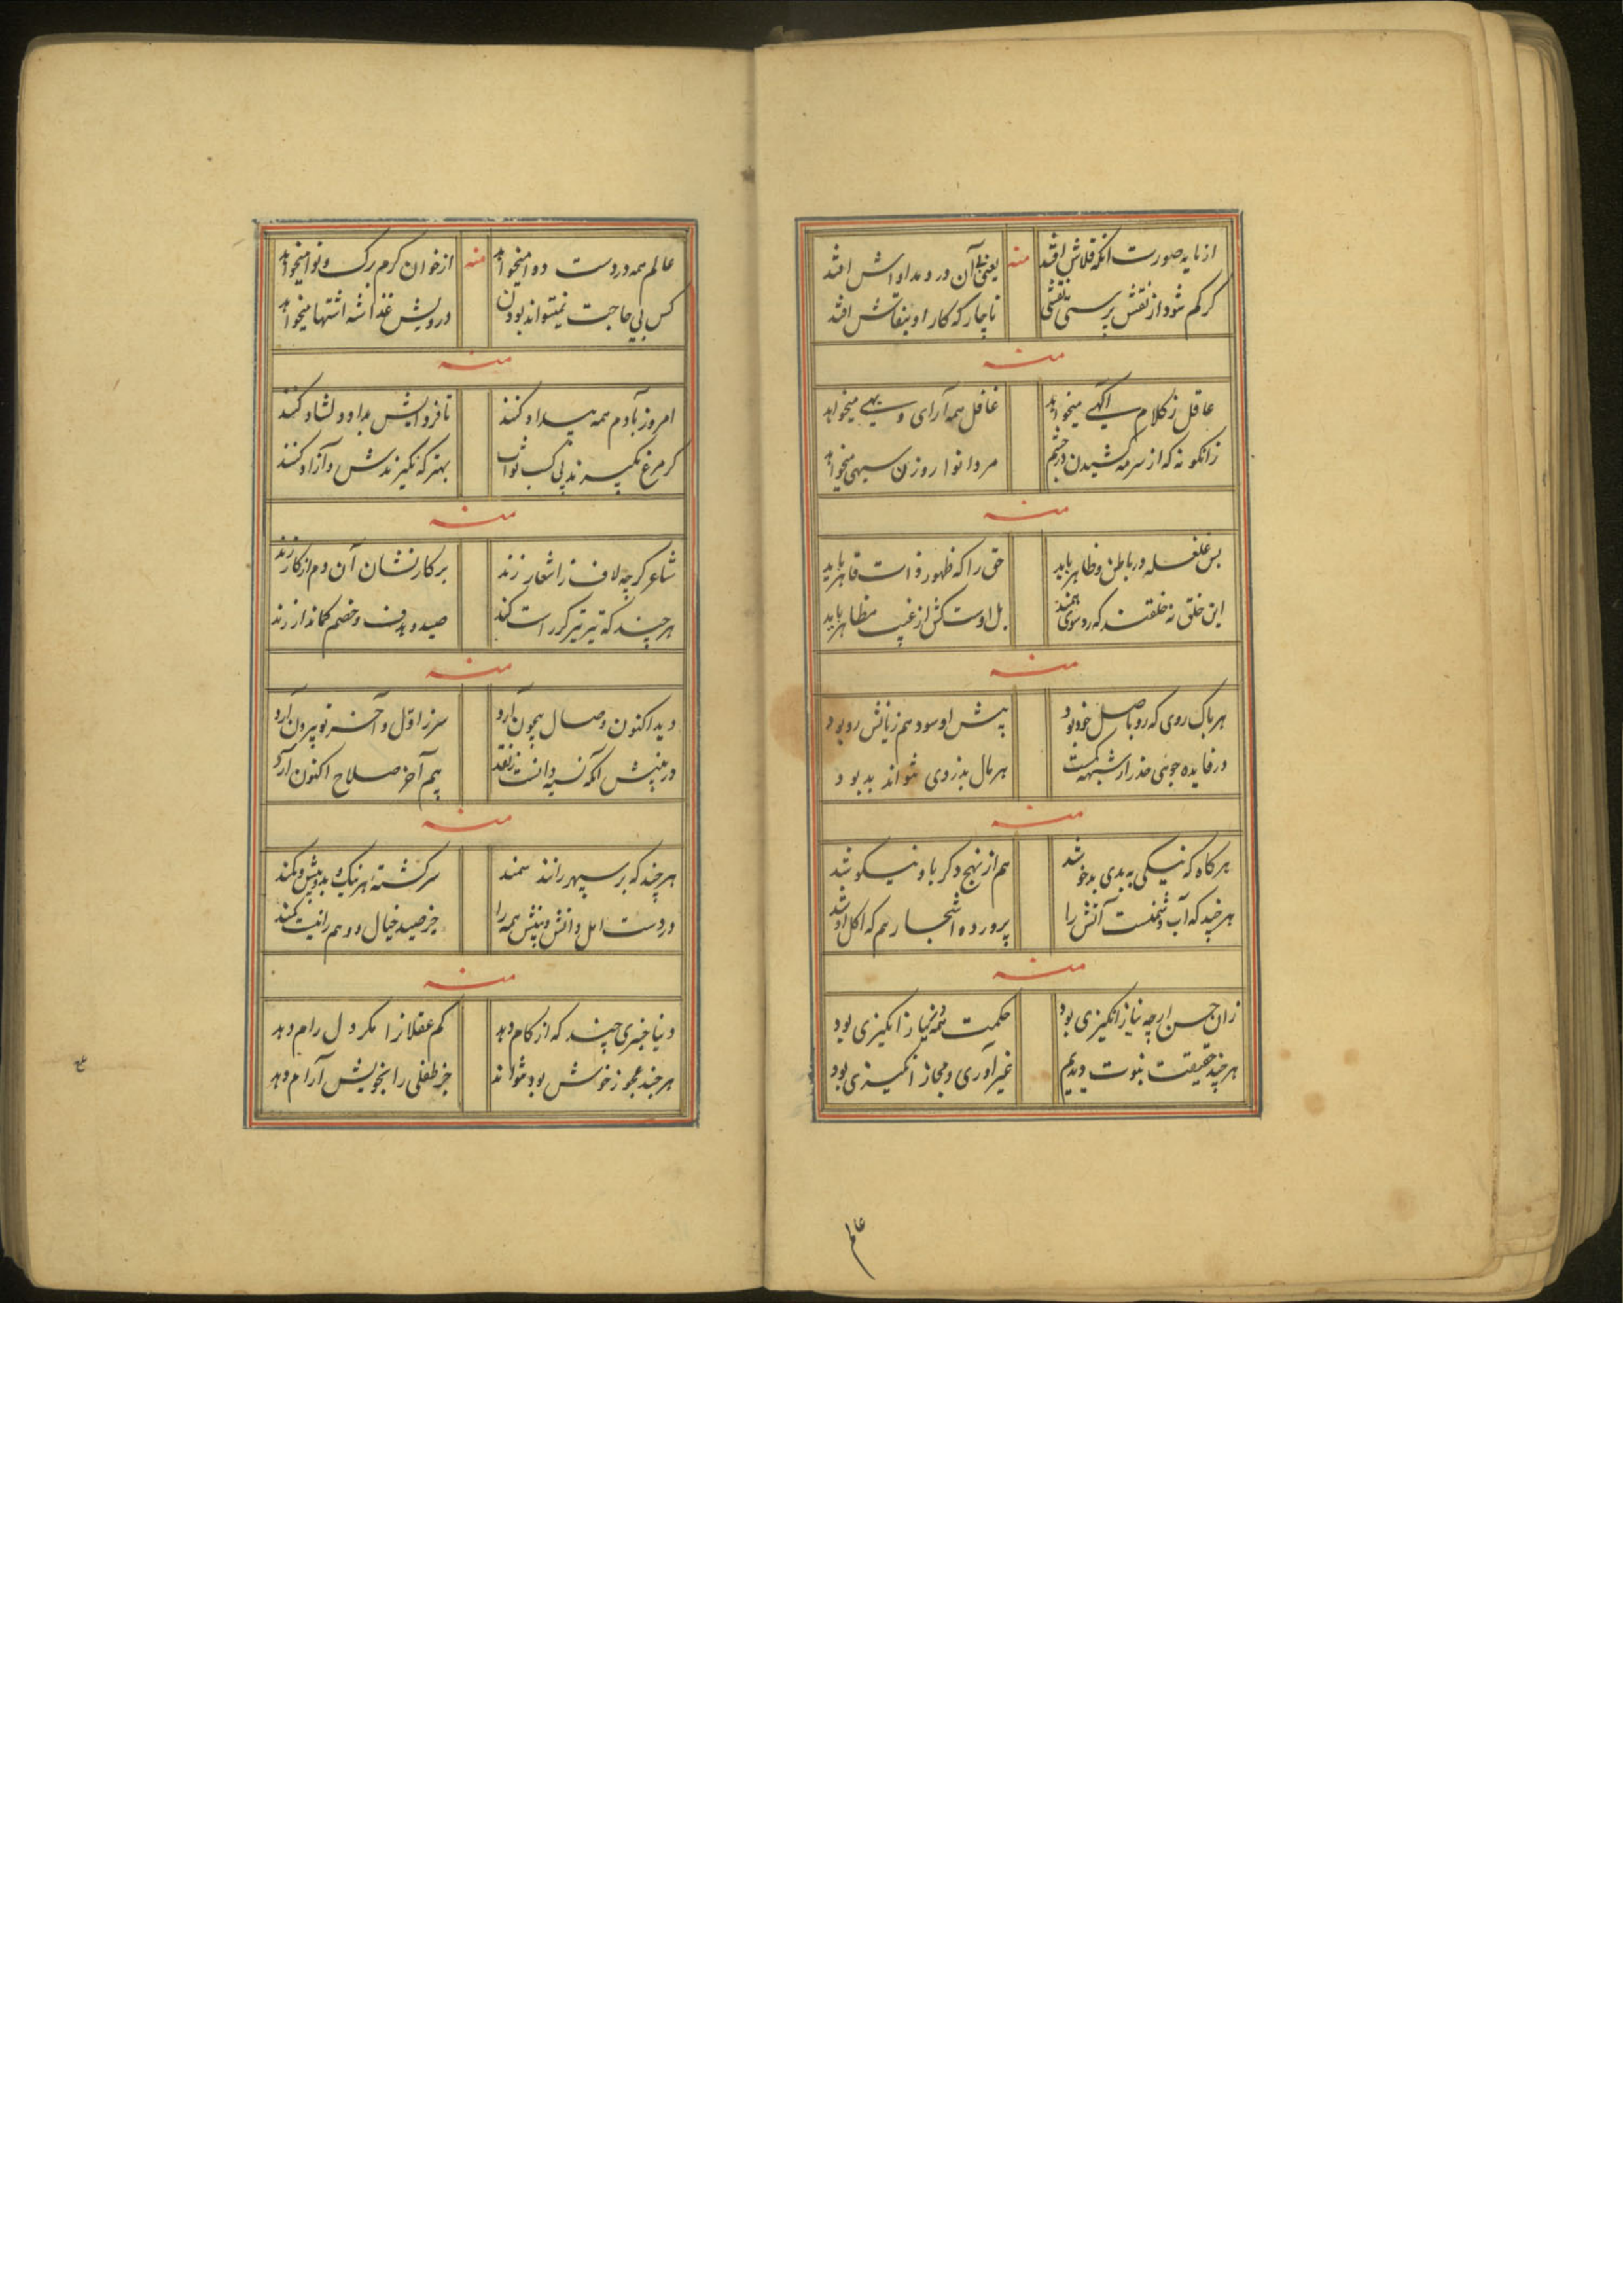 از نایه صورت انکه قلاش افتد منه یعنی آن درد مداواش افتد
کر کم شود از نقش پرستی نقشی ناچار که کار او بنقاش افتد
منه
عاقل ز کلام اکهی میخواهد غافل همه آرای و بهی میخواهد
زانکونه که از سرمه کشیدن در چشم مردانوا روزن سیهی میخواهد
منه
بس غلغله در باطن و ظاهر باید حق را که ظهور ذات قاهر باید
این خلق نه خلقند که رو سوی همند بل اوست کش از غیب مظاهر باید
منه
هر باک روی که رو باصل خود بود پیش او سود هم زیانش رو بود
در فایده جوئی حذر از شبهه کمست هر مال بدزدی تواند بد بود
منه
هر کاه که نیکی به بدی بدخو شد هم از نهج دکر باو نیکو شد
هر چند که آب دشمنست آتش را پرورده اشجار هم که اکل او شد
منه
زان حسن ارچه نیاز انکیزی بود حکمت همه نیاز انکیزی بود
هر چند حقیقت بنوت دیدیم غیر آوری و مجاز انکیزی بود
عالم
عالم همه دردست دوا میخواهد منه از خوان کرم برک و نوا میخواهد
کس بی حاجت نمیتواند بودن درویش غذا شه اشتها میخواهد
منه
امروز بآدم همه بیداد کنند تا فرداش بداد دلشاد کنند
کر مرغ نکیرند پی کسب ثواب بهتر که نکیرندش و آزاد کنند
منه
شاعر کر چه لاف ز اشعار زند بر کار نشان آن دم از کار زند
هر چند که تیر تیرکر راست کند صید و هدف و خصم کماندار زند
منه
دید اکنون وصال بیچون آرد سر ز اول و آخر تو بیرون آرد
در بینش آنکه نسیه دانست ز نقد بیم آخر صلاح اکنون آرد
منه
هر چند که بر سپهر رانند سمند سرکشته هر نیک و بد و بیش و کمند
در دست امل دانش و بینش همه را جز صید خیال و وهم را نیست کمند
منه
دنیا چیزی چند که از کام دهد کم عقلانرا مکر دل رام دهد
هر چند عجوز خوش بود نتواند جز طفلی را بخویش آرام دهد